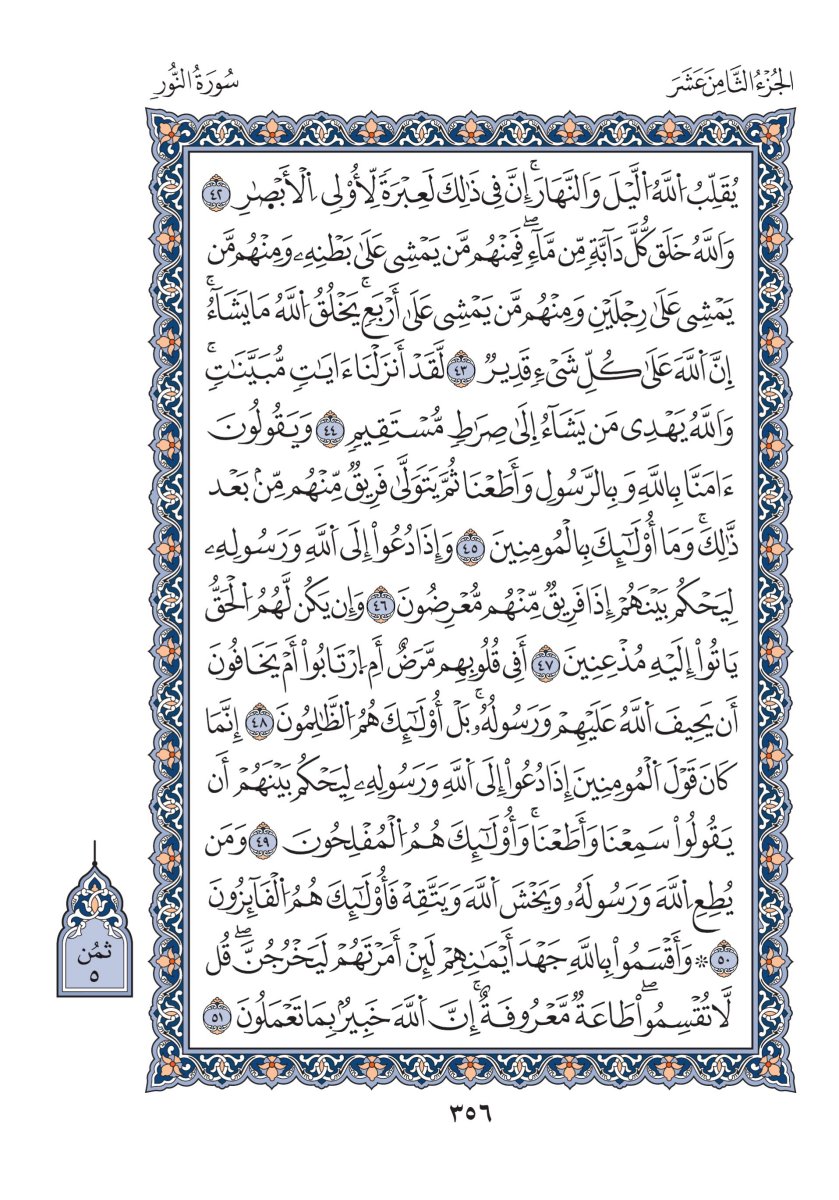 الجُزْءُ الثَّامِنَ عَشَرَ
سُورَةُ النُّورِ
يُقَلِّبُ اُللَّهُ اُلَّيْلَ وَالنَّهَارَۚ إِنَّ فِي ذَٰلِكَ لَعِبْرَةٗ لِّأُوْلِي اِلْأَبْصٰ۪رِ ٤٢
وَاللَّهُ خَلَقَ كُلَّ دَآبَّةٖ مِّن مَّآءٖۖ فَمِنْهُم مَّن يَمْشِي عَلَىٰ بَطْنِهِۦ وَمِنْهُم مَّن
يَمْشِي عَلَىٰ رِجْلَيْنِ وَمِنْهُم مَّن يَمْشِي عَلَىٰ أَرْبَعٖۚ يَخْلُقُ اُللَّهُ مَا يَشَآءُۚ
إِنَّ اَللَّهَ عَلَىٰ كُلِّ شَيْءٖ قَدِيرٞ ٤٣ لَّقَدْ أَنزَلْنَا ءَايَٰتٖ مُّبَيَّنَٰتٖۚ
وَاللَّهُ يَهْدِي مَن يَشَآءُ إِلَىٰ صِرَٰطٖ مُّسْتَقِيمٖ ٤٤ وَيَقُولُونَ
ءَامَنَّا بِاللَّهِ وَبِالرَّسُولِ وَأَطَعْنَا ثُمَّ يَتَوَلَّىٰ فَرِيقٞ مِّنْهُم مِّنۢ بَعْد
ذَّٰلِكَۚ وَمَا أُوْلَٰٓئِكَ بِالْمُومِنِينَ ٤٥ وَإِذَا دُعُواْ إِلَى اَللَّهِ وَرَسُولِهِۦ
لِيَحْكُم بَيْنَهُمْ إِذَا فَرِيقٞ مِّنْهُم مُّعْرِضُونَ ٤٦ وَإِن يَكُن لَّهُمُ اُلْحَقُّ
يَاتُوٓاْ إِلَيْهِ مُذْعِنِينَ ٤٧ أَفِي قُلُوبِهِم مَّرَضٌ أَمِ اِرْتَابُوٓاْ أَمْ يَخَافُونَ
أَن يَحِيفَ اَللَّهُ عَلَيْهِمْ وَرَسُولُهُۥۚ بَلْ أُوْلَٰٓئِكَ هُمُ اُلظَّٰلِمُونَ ٤٨ إِنَّمَا
كَانَ قَوْلَ اَلْمُومِنِينَ إِذَا دُعُواْ إِلَى اَللَّهِ وَرَسُولِهِۦ لِيَحْكُم بَيْنَهُمْ أَن
يَقُولُواْ سَمِعْنَا وَأَطَعْنَاۚ وَأُوْلَٰٓئِكَ هُمُ اُلْمُفْلِحُونَ ٤٩ وَمَن
يُطِعِ اِللَّهَ وَرَسُولَهُۥ وَيَخْشَ اَللَّهَ وَيَتَّقِهْ فَأُوْلَٰٓئِكَ هُمُ اُلْفَآئِزُونَ
٥٠ ۞ وَأَقْسَمُواْ بِاللَّهِ جَهْدَ أَيْمَٰنِهِمْ لَئِنْ أَمَرْتَهُمْ لَيَخْرُجُنَّۖ قُل
لَّا تُقْسِمُواْۖ طَاعَةٞ مَّعْرُوفَةٌۚ إِنَّ اَللَّهَ خَبِيرُۢ بِمَا تَعْمَلُونَ ٥١
ثمُن
٥
٣٥٦